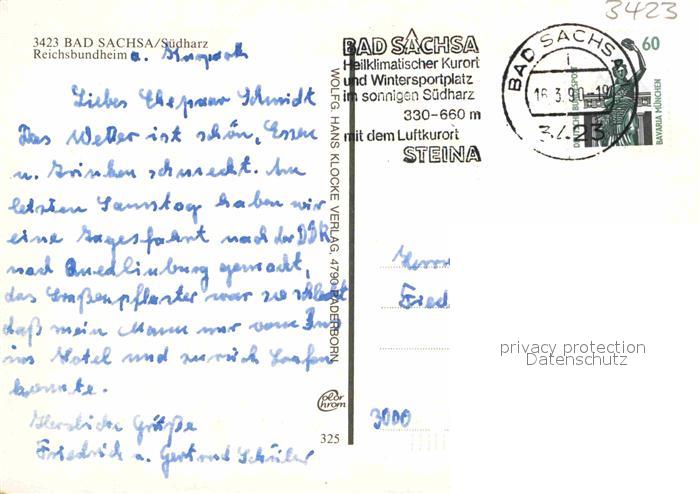 3423
3423 BAD SACHSA/Südharz
Reichsbundheim a.
Liebes Ehepaar Schmidt
Das Wetter ist schön, Essen
u. Trinken schmeckt. Am
letzten Samstag haben wir
eine Tagesfahrt nach der DDR
nach Quedlinburg gemacht,
das Straßenpflaster war so schlecht
daß mein Mann nur vom Bus
ins Hotel und zurück laufen
konnte.
Herzliche Grüße
Friedrich u. Gertrud Schüler
WOLFG. HANS KLOCKE VERLAG, 4790 PADERBORN
color chrom
325
BAD SACHSA
Heilklimatischer Kurort
und Wintersportplatz
im sonnigen Südharz
330-660 m
mit dem Luftkurort
STEINA
BAD SACHSA
i
16.3.90-19
3423
60
DEUTSCHE BUNDESPOST
BAVARIA MÜNCHEN
Herrn
Fried
3000
privacy protection
Datenschutz